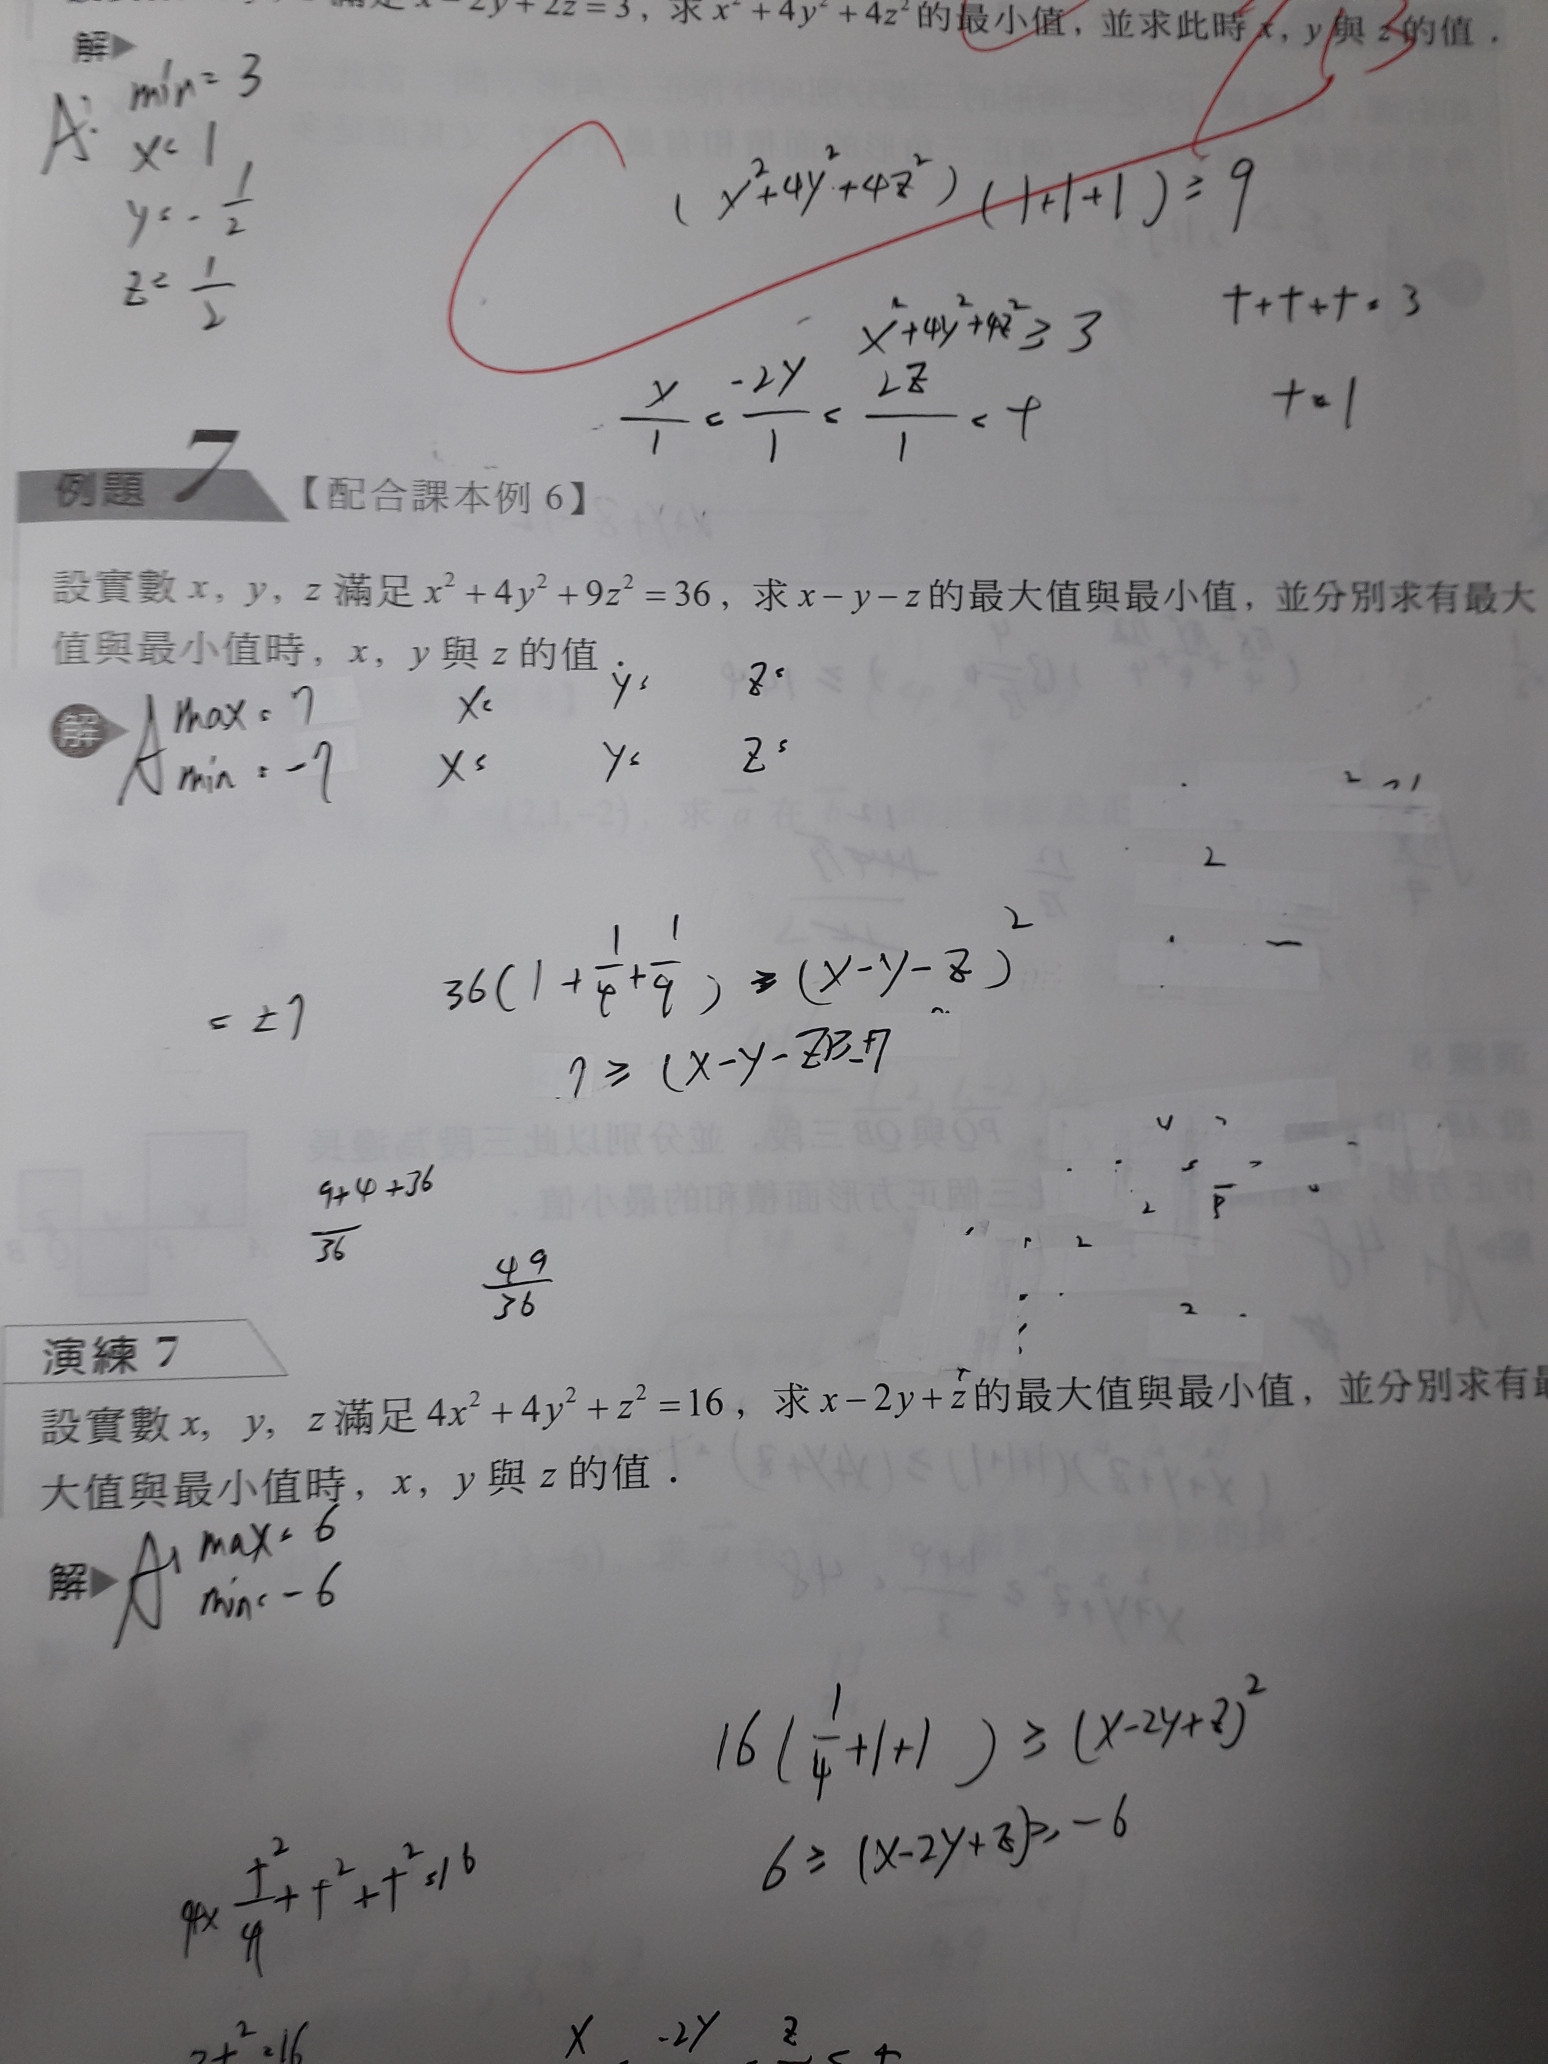 x − 2y + 2z = 3，求 x² + 4y² + 4z² 的最小值，並求此時 x, y 與 z 的值．
解▶
A: min = 3
x = 1
y = -1/2
z = 1/2
(x²+4y²+4z²)(1+1+1) ≥ 9
x²+4y²+4z² ≥ 3
t+t+t = 3
x/1 = -2y/1 = 2z/1 = t
t = 1
例題 7 【配合課本例 6】
設實數 x，y，z 滿足 x² + 4y² + 9z² = 36，求 x − y − z 的最大值與最小值，並分別求有最大
值與最小值時，x，y 與 z 的值．
解 A max = 7 x= y= z=
min = -7 x= y= z=
36(1 + 1/4 + 1/9) ≥ (x-y-z)²
= ±7
7 ≥ (x-y-z) ≥ -7
9+4+36/36
49/36
演練 7
設實數 x，y，z 滿足 4x² + 4y² + z² = 16，求 x − 2y + z 的最大值與最小值，並分別求有最
大值與最小值時，x，y 與 z 的值．
解▶ A: max = 6
min = -6
16(1/4+1+1) ≥ (x-2y+z)²
6 ≥ (x-2y+z) ≥ -6
4x t²/4 + t² + t² = 16
t² = 16
x -2y z = t